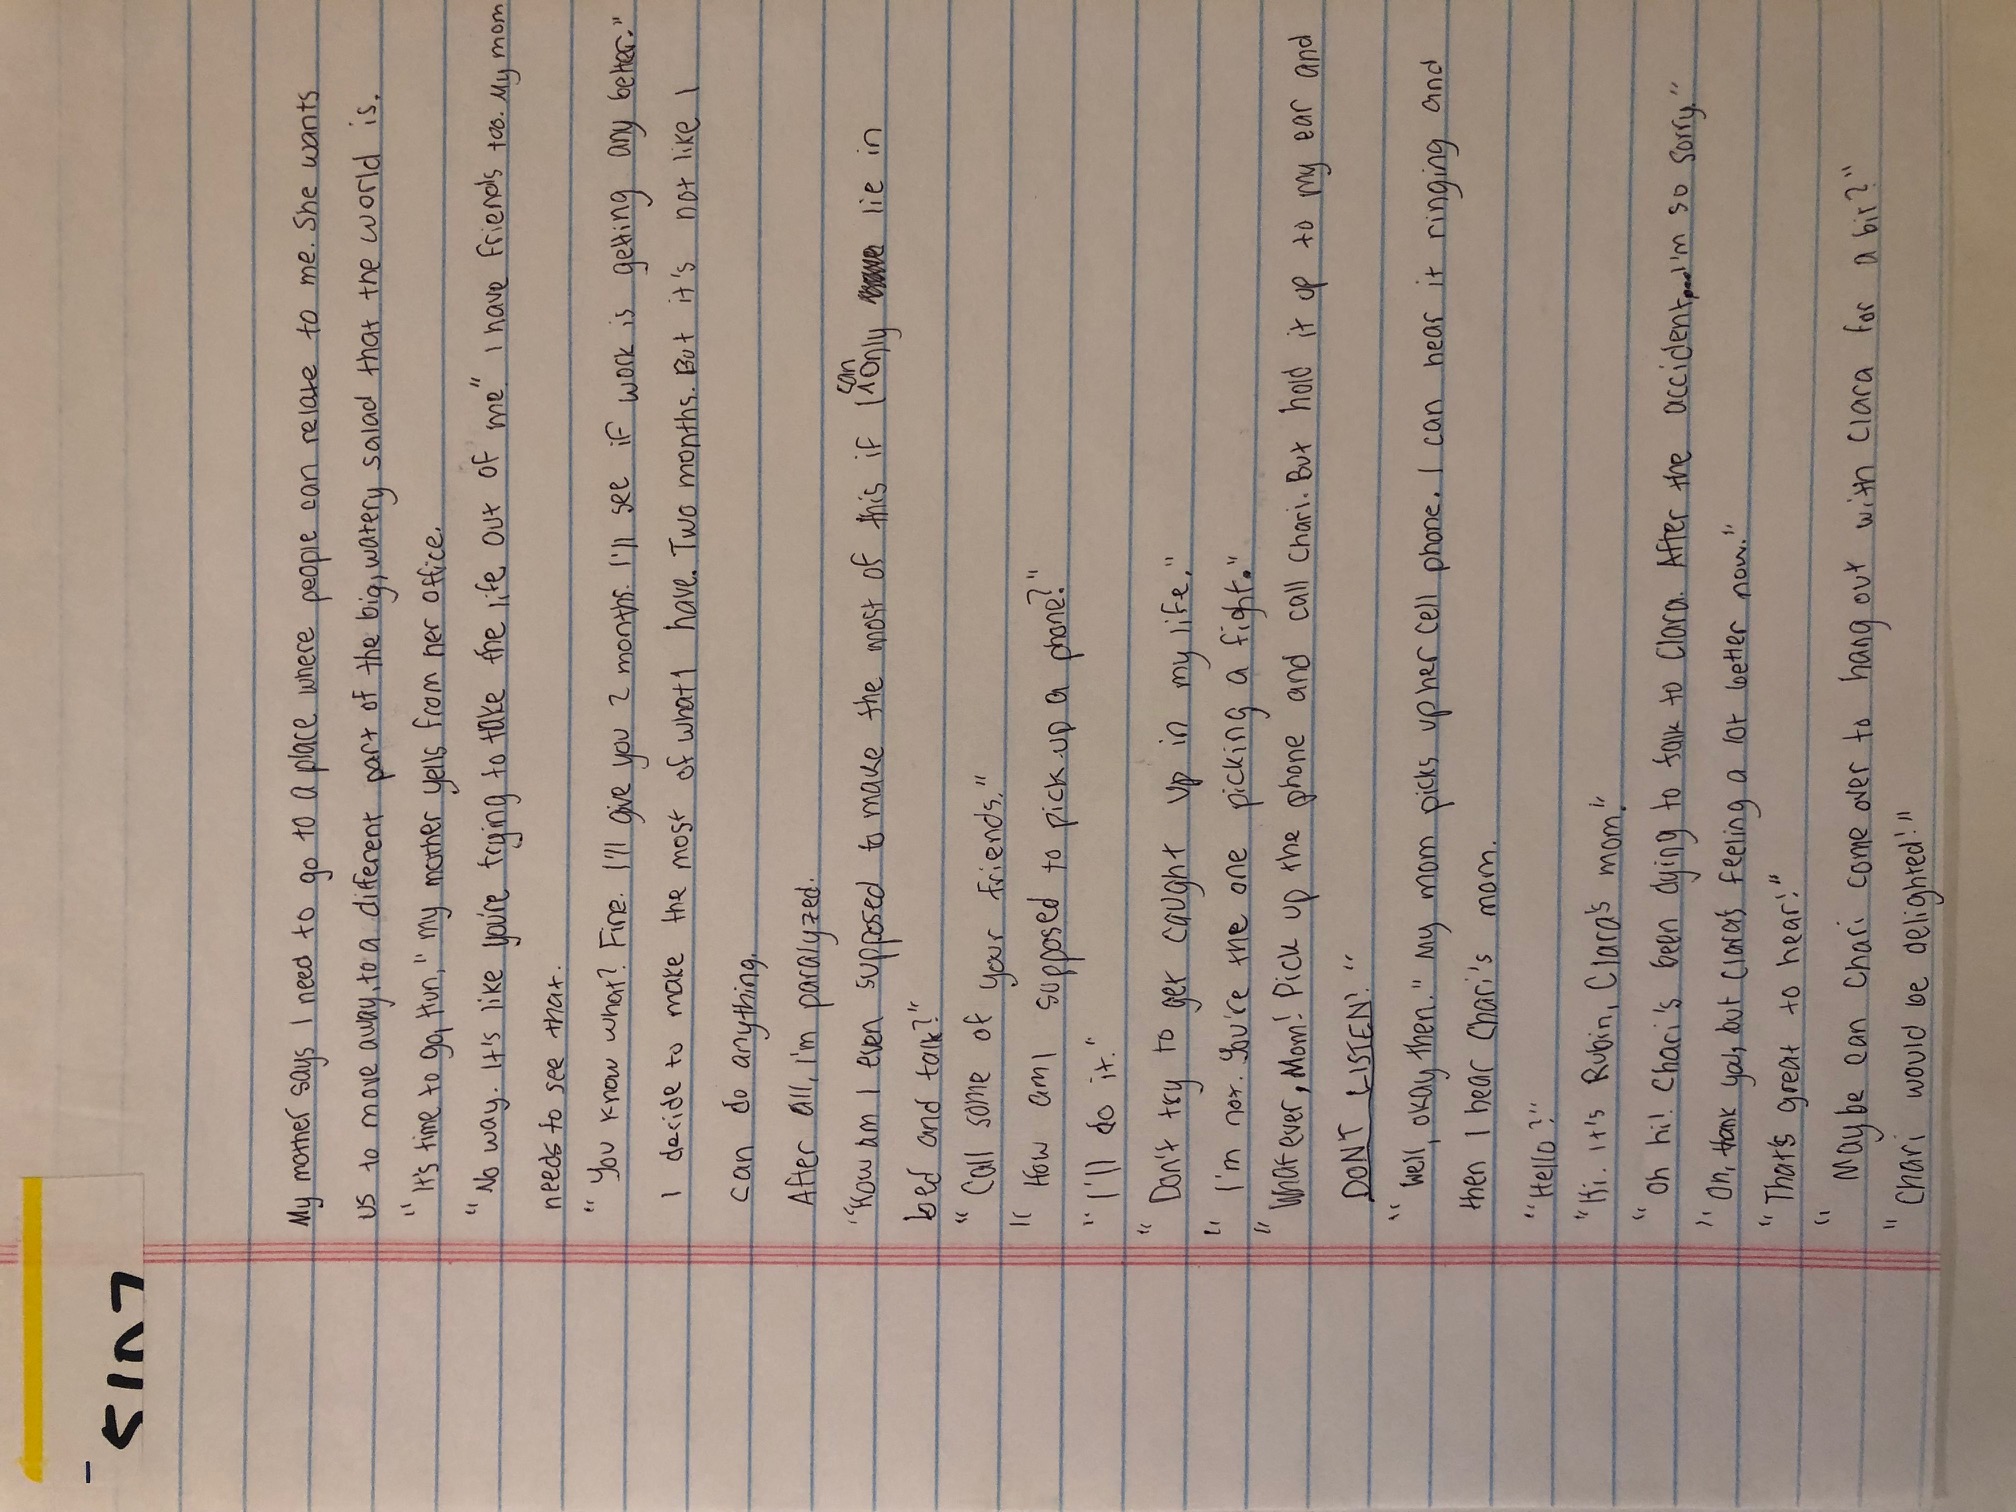 My mother says I need to go to a place where people can relate to me. She wants
us to move away, to a different part of the big, watery salad that the world is.
"It's time to go, Hun," my mother yells from her office.
"No way. It's like you're trying to take the life out of me" I have friends too. My mom
needs to see that.
"You know what? Fine. I'll give you 2 months. I'll see if work is getting any better."
I decide to make the most of what I have. Two months. But it's not like I
can do anything.
After all, I'm paralyzed.
"How am I even supposed to make the most of this if I can only lie in
bed and talk?"
"Call some of your friends."
"How am I supposed to pick up a phone?"
"I'll do it."
"Don't try to get caught up in my life."
"I'm not. You're the one picking a fight."
"Whatever, Mom! Pick up the phone and call Chari. But hold it up to my ear and
DON'T LISTEN!"
"Well, okay then." My mom picks up her cell phone. I can hear it ringing and
then I hear Chari's mom.
"Hello?"
"Hi. It's Rubin, Clara's mom."
"Oh hi! Chari's been dying to talk to Clara. After the accident.... I'm so sorry."
"Oh, thank you, but Clara's feeling a lot better now."
"That's great to hear!"
"Maybe can Chari come over to hang out with Clara for a bit?"
"Chari would be delighted!"